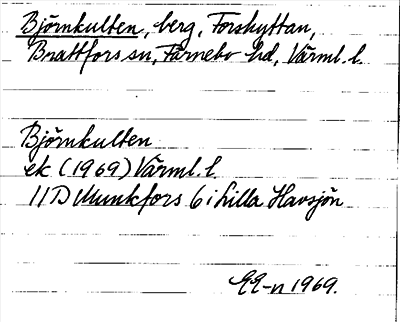 Björnkullen, berg, Forshyttan,
Brattfors sn, Färnebo hd, Värml. l.
Björnkullen
ek (1969) Värml. l.
11D Munkfors 6 i Lilla Havsjön
EE-n 1969.